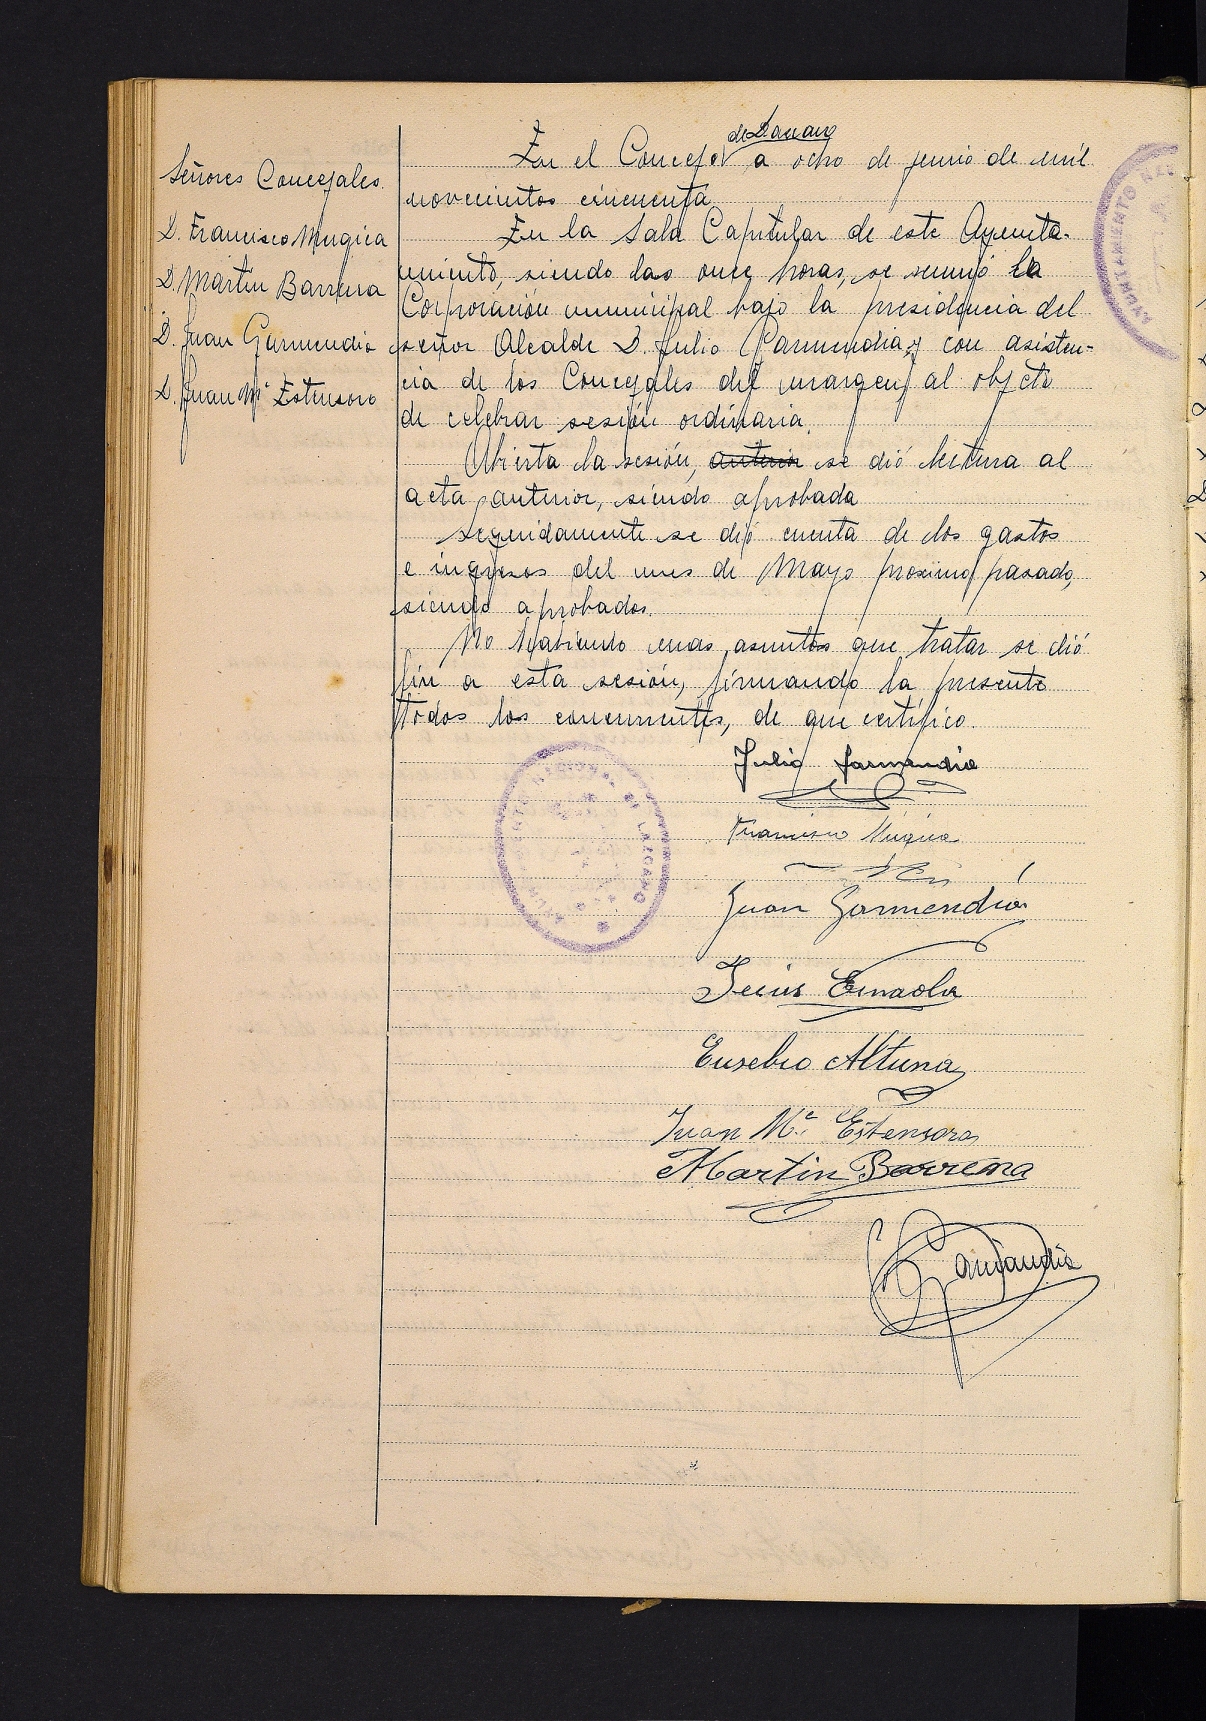 Señores Concejales
D. Francisco Mugica
D. Martin Barrena
D. Juan Garmendia
D. Juan Mª Estensoro
de Lazcano
En el Concejo a ocho de junio de mil
novecientos cincuenta
En la Sala Capitular de este Ayunta-
miento, siendo las once horas, se reunió la
Corporación municipal bajo la presidencia del
señor Alcalde D. Julio Garmendia y con asisten-
cia de los Concejales del margen al objeto
de celebrar sesión ordinaria.
Abierta la sesión, anterior se dió lectura al
acta anterior, siendo aprobada
seguidamente se dió cuenta de los gastos
e ingresos del mes de Mayo proximo pasado,
siendo aprobados.
No habiendo mas asuntos que tratar se dió
fin a esta sesión, firmando la presente
todos los concurrentes, de que certifico.
Julio Garmendia
Francisco Mugica
Juan Garmendia
Jesús Emaola
Eusebio Altuna
Juan Mª Estensoro
Martin Barrena
AYUNTAMIENTO NACIONAL DE LAZCANO
AYUNTAMIENTO